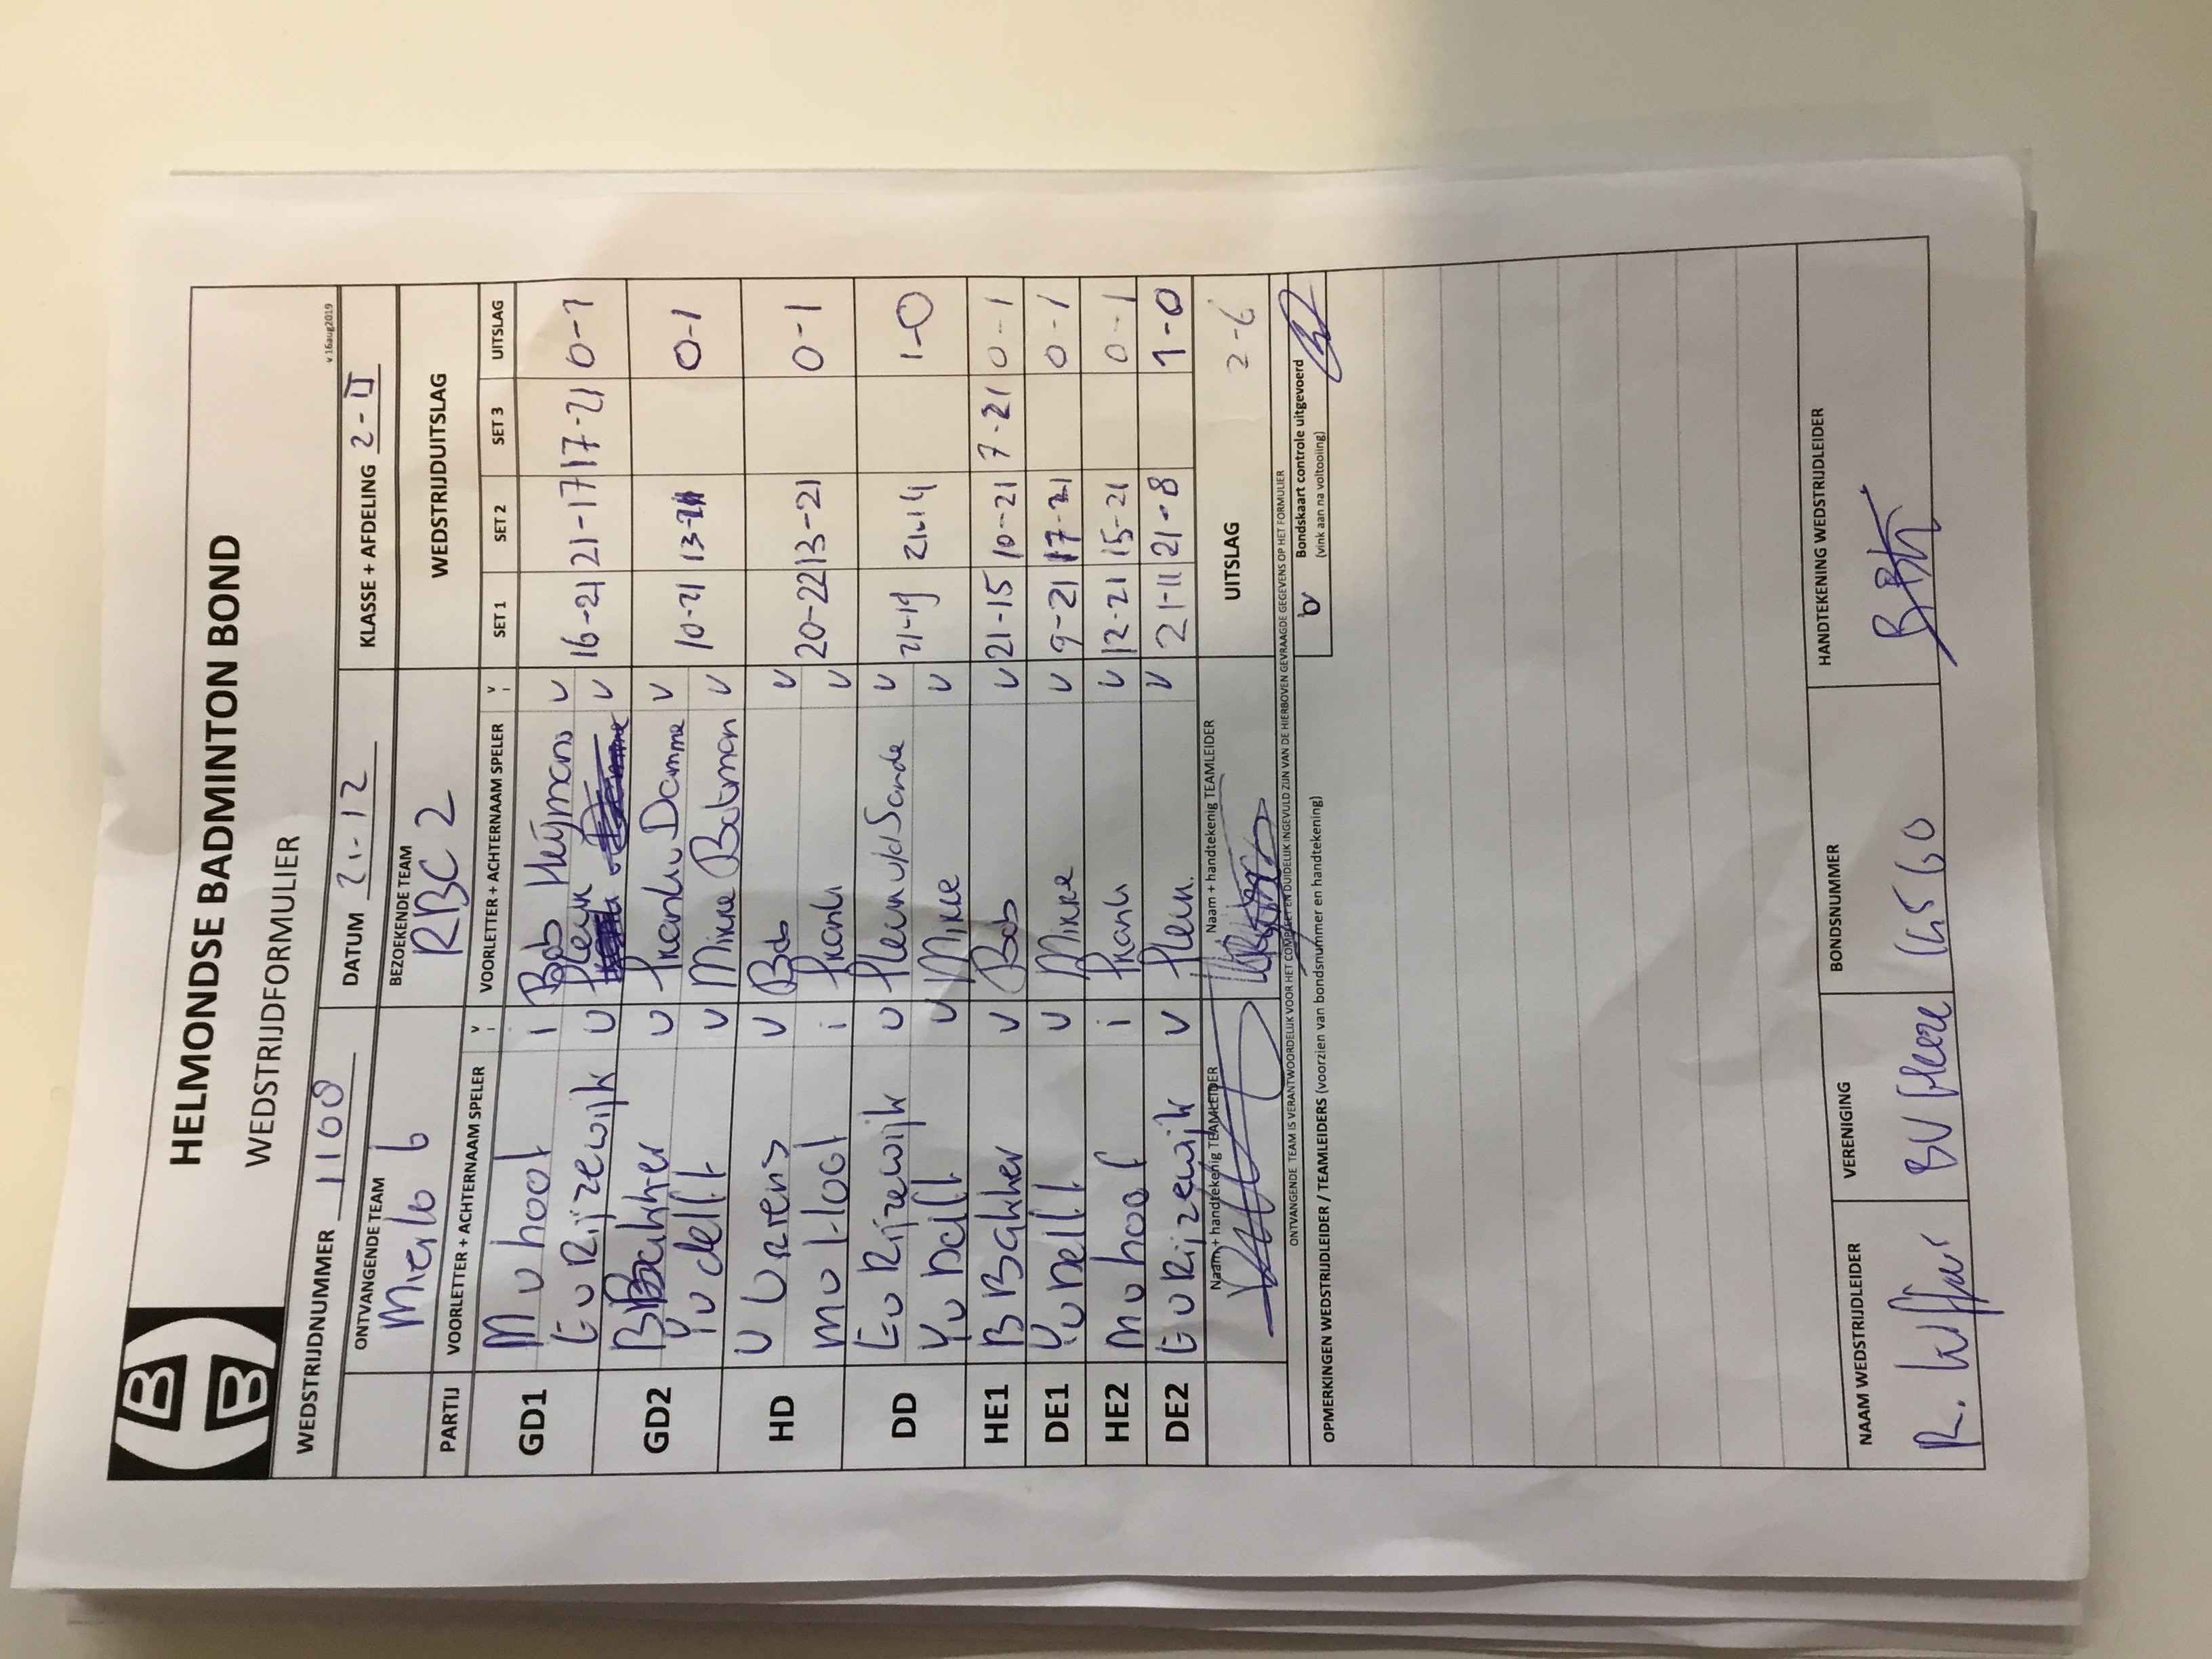 HELMONDSE BADMINTON BOND
WEDSTRIJDFORMULIER
v.16aug2019
WEDSTRIJDNUMMER 1108 DATUM 21-12 KLASSE + AFDELING 2-II
ONTVANGENDE TEAM BEZOEKENDE TEAM WEDSTRIJDUITSLAG
Mierlo 6 RBC 2
PARTIJ VOORLETTER + ACHTERNAAM SPELER V I VOORLETTER + ACHTERNAAM SPELER V I SET 1 SET 2 SET 3 UITSLAG
GD1 M v hoof i Bob Heijmans v
E v Rijzewijk v Pleun v 16-21 21-17 17-21 0-1
GD2 B Bakker v Frank v Damme v
Y v delft v Minne Botman v 10-21 13-21 0-1
HD v v Bob v
M v Hoof i Frank v 20-22 13-21 0-1
DD E v Rijzewijk v Pleun v/d Sande v
Y v Delft v Minne v 21-19 21-14 1-0
HE1 B Bakker v Bob v 21-15 10-21 7-21 0-1
DE1 Y v Delft v Minne v 9-21 17-21 0-1
HE2 M v hoof i Frank v 12-21 15-21 0-1
DE2 E v Rijzewijk v Pleun. v 21-11 21-8 1-0
Naam + handtekenig TEAMLEIDER Naam + handtekenig TEAMLEIDER UITSLAG 2-6
ONTVANGENDE TEAM IS VERANTWOORDELIJK VOOR HET COMPLEET EN DUIDELIJK INGEVULD ZIJN VAN DE HIERBOVEN GEVRAAGDE GEGEVENS OP HET FORMULIER
Bondskaart controle uitgevoerd
(vink aan na voltooiing)
OPMERKINGEN WEDSTRIJDLEIDER / TEAMLEIDERS (voorzien van bondsnummer en handtekening)
NAAM WEDSTRIJDLEIDER VERENIGING BONDSNUMMER HANDTEKENING WEDSTRIJDLEIDER
R. BV